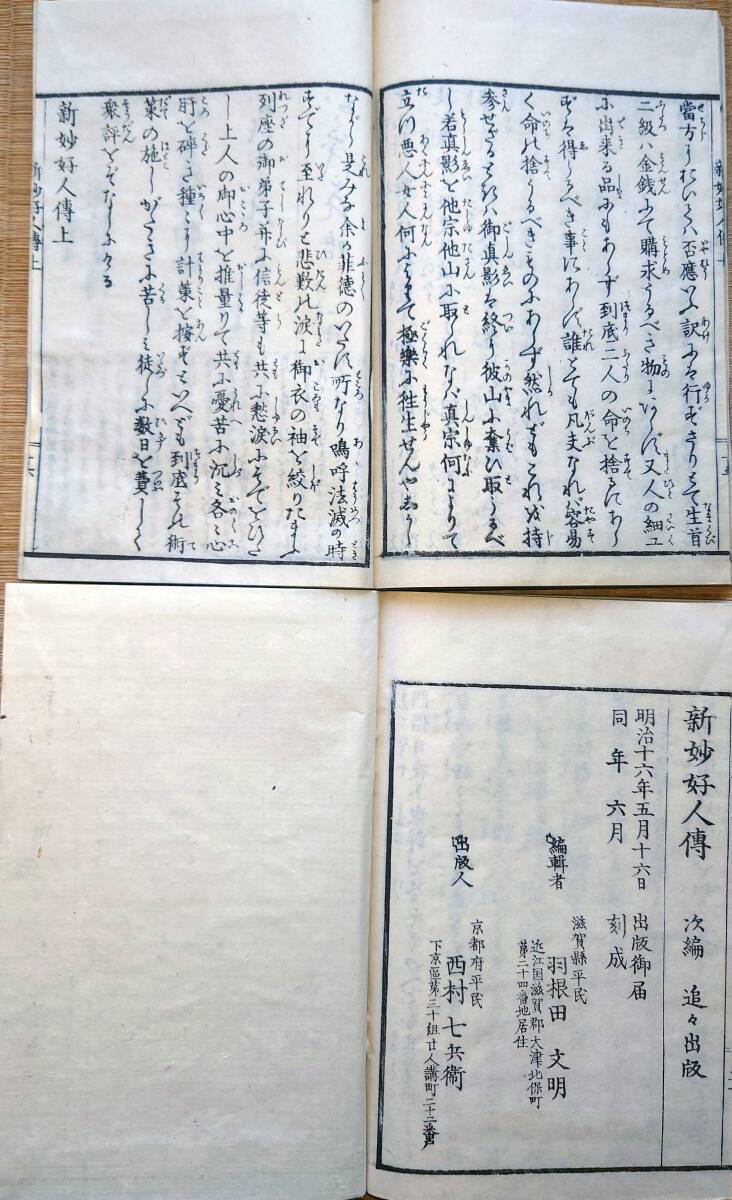 當方においては否應いふ訳にハ行ずさりとて生首
二級ハ金銭にて購求うるべき物にあらず又人の細工
に出来る品にもあらず到底二人の命を捨るにあら
ずバ得るべき事にあらず誰とても凡夫なれバ容易
く命の捨うるべきものにあらず然れどもこれを持
参せざるときハ御真影ハ終に彼山に奪ひ取るべ
し若真影を他宗他山に取られなバ真宗何によりて
立ん悪人女人何によりて極樂に往生せんや
是みな余が菲徳のいたす所なり嗚呼法滅の時
すでに至れりと悲歎の涙に御衣の袖を絞りたまふ
列座の御弟子并に信徒等も共に愁涙にそでをひた
し上人の御心中を推量りて共に憂苦に沉ミ各々心
肝を碎き種々計策を按ずといへども到底それ術
策の施しがたきに苦しミ徒らに数日を費して
衆評とぞなりにける
新妙好人傳上
新妙好人傳上
新妙好人傳 次編 追々出版
明治十六年五月十六日 出版御届
同年六月 刻成
滋賀縣平民
編輯者 羽根田文明
近江国滋賀郡大津北保町
第二十四番地居住
京都府平民
出版人 西村七兵衞
下京區第三十組廿人講町二十二番戸